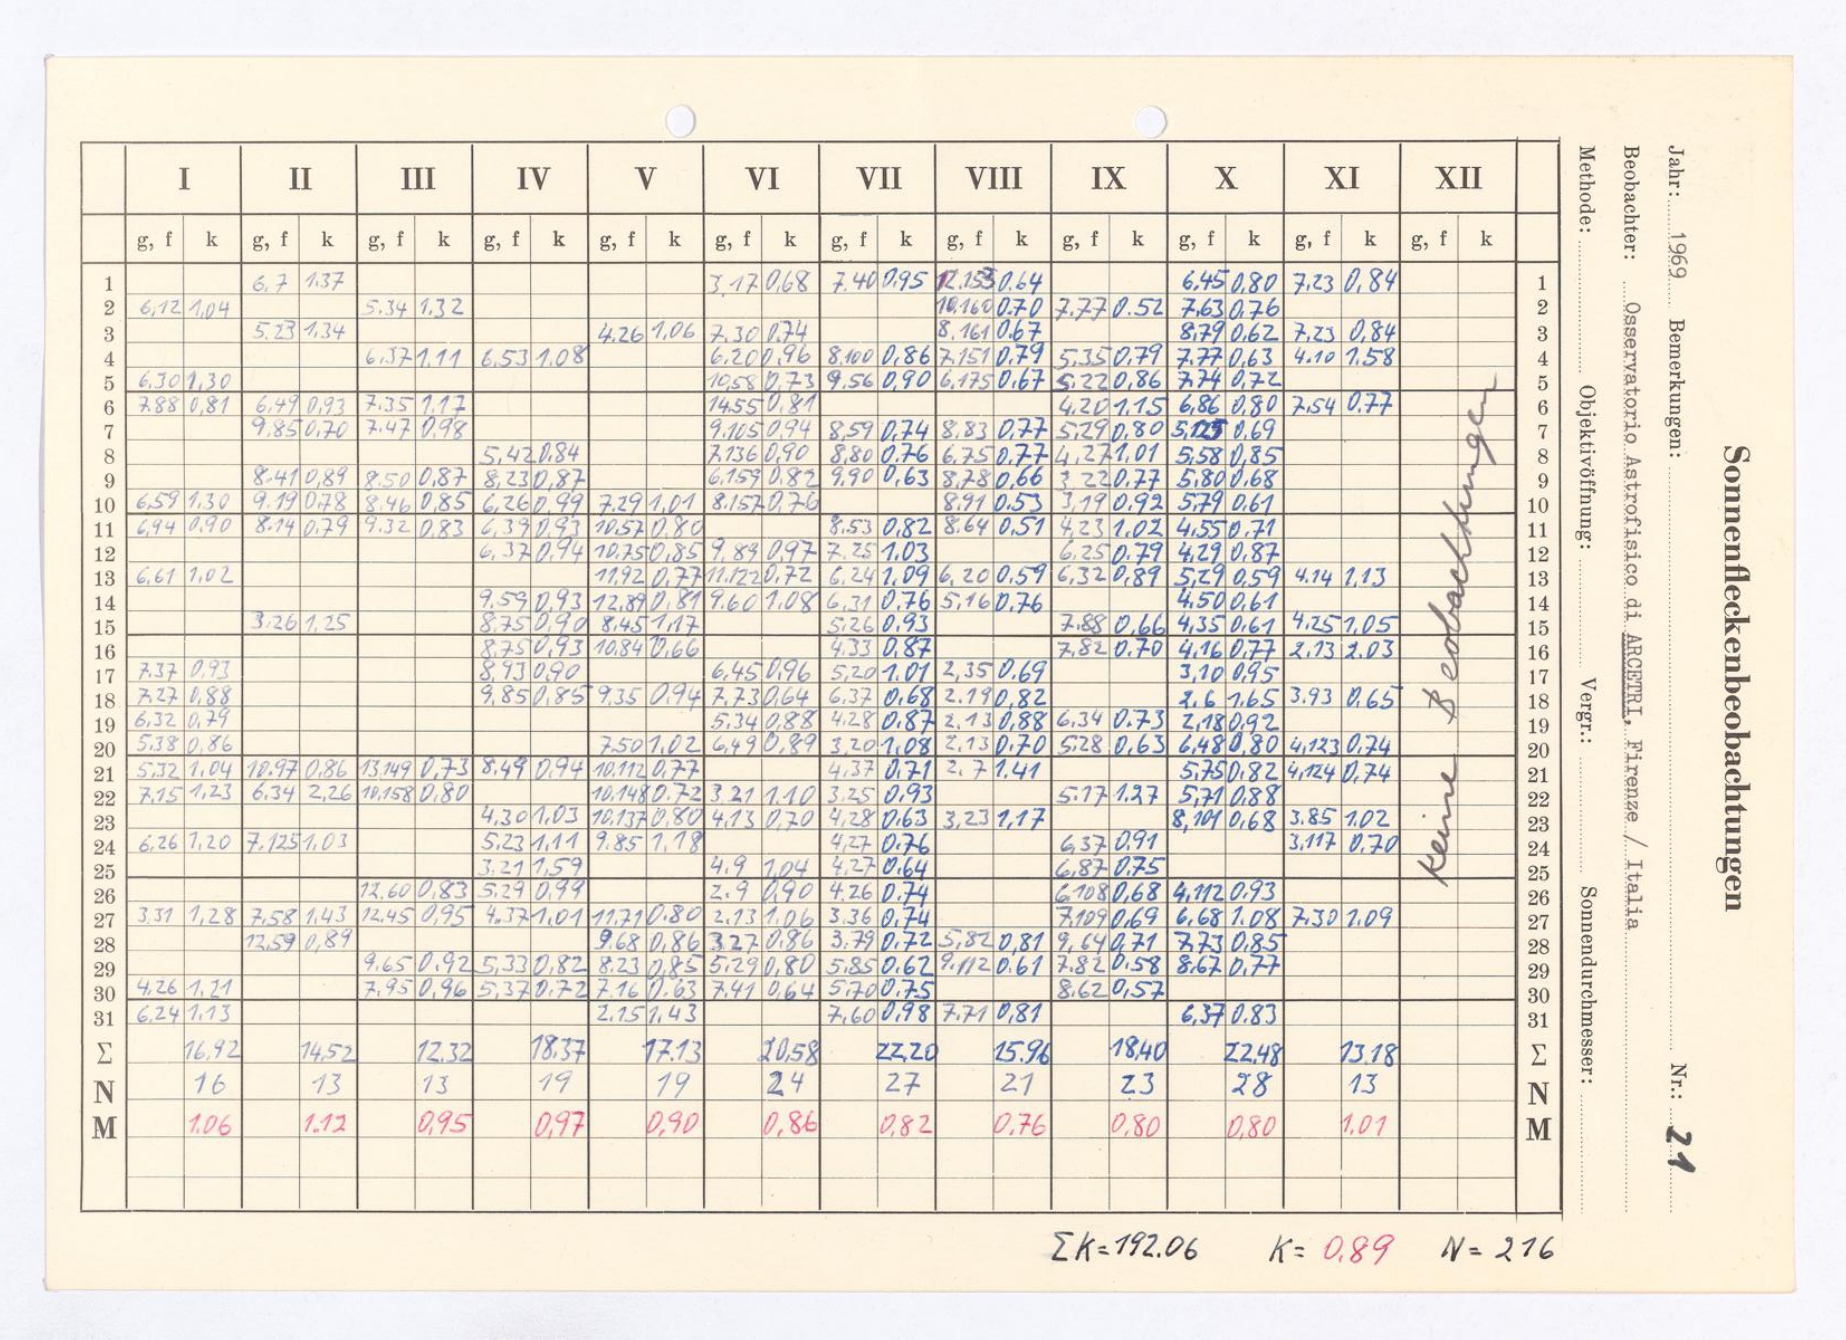 I II III IV V VI VII VIII IX X XI XII
g, f k g, f k g, f k g, f k g, f k g, f k g, f k g, f k g, f k g, f k g, f k g, f k
1 6,7 1.37 3,17 0,68 7.40 0.95 12.153 0.64 6,45 0,80 7,23 0,84 1
2 6,12 1,04 5.34 1.32 10.160 0.70 7.77 0.52 7,63 0,76 2
3 5.23 1.34 4.26 1,06 7.30 0.74 8,161 0.67 8,79 0,62 7,23 0,84 3
4 6,37 1,11 6,53 1.08 6.20 0,96 8,100 0,86 7,151 0,79 5,35 0,79 7,77 0,63 4.10 1.58 4
5 6.30 1,30 10,58 0,73 9,56 0,90 6,175 0,67 5,22 0,86 7,74 0,72 5
6 7.88 0,81 6,49 0,93 7.35 1.17 14.55 0,81 4.20 1.15 6,86 0,80 7,54 0,77 6
7 9,85 0,70 7.47 0,98 9.105 0,94 8,59 0,74 8,83 0,77 5,29 0,80 5,125 0,69 7
8 5,42 0,84 7,136 0,90 8,80 0,76 6,75 0,77 4,27 1.01 5,58 0,85 8
9 8.41 0,89 8.50 0,87 8,23 0,87 6,159 0,82 9,90 0,63 8,78 0,66 3,22 0.77 5,80 0,68 9
10 6,59 1,30 9,19 0,78 8.46 0,85 6,26 0,99 7.29 1,01 8.157 0,76 8,91 0.53 3,19 0,92 5,79 0,61 10
11 6,94 0,90 8.14 0,79 9.32 0,83 6,39 0,93 10.57 0,80 8.53 0,82 8.64 0,51 4,23 1.02 4,55 0,71 11
12 6,37 0,94 10.75 0,85 9,89 0,97 7.25 1.03 6.25 0.79 4,29 0,87 12
13 6,61 1,02 11,92 0,77 11.122 0,72 6,24 1.09 6,20 0,59 6,32 0,89 5,29 0,59 4.14 1.13 13
14 9,59 0,93 12.89 0,81 9.60 1,08 6,31 0,76 5,16 0,76 4,50 0,61 14
15 3.26 1,25 8,75 0,90 8,45 1,17 5,26 0,93 7.88 0,66 4,35 0,61 4.25 1,05 15
16 8,75 0,93 10.84 0,66 4.33 0,87 7,82 0.70 4,16 0,77 2.13 2.03 16
17 7.37 0,93 8,93 0,90 6,45 0,96 5,20 1.01 2,35 0.69 3,10 0,95 17
18 7,27 0,88 9,85 0,85 9,35 0,94 7.73 0,64 6,37 0,68 2.19 0,82 2.6 1.65 3.93 0,65 18
19 6,32 0,79 5.34 0,88 4.28 0,87 2.13 0,88 6,34 0.73 2,18 0,92 19
20 5.38 0,86 7.50 1,02 6,49 0,89 3,20 1,08 2,13 0,70 5,28 0,63 6,48 0,80 4,123 0,74 20
21 5,32 1,04 10.97 0,86 13.149 0,73 8,49 0,94 10.112 0,77 4,37 0,71 2.7 1.41 5,75 0,82 4,124 0,74 21
22 7.15 1,23 6.34 2,26 10,158 0,80 10.148 0.72 3,21 1.10 3,25 0,93 5.17 1.27 5,71 0,88 22
23 4,30 1,03 10.137 0,80 4.13 0,70 4,28 0,63 3,23 1,17 8,101 0,68 3,85 1.02 23
24 6,26 1,20 7,125 1,03 5,23 1,11 9.85 1,18 4,27 0,76 6,37 0.91 3,117 0,70 24
25 3,21 1,59 4.9 1,04 4.27 0,64 6,87 0.75 25
26 12.60 0,83 5.29 0,99 2.9 0,90 4.26 0,74 6,108 0,68 4,112 0.93 26
27 3.31 1,28 7,58 1.43 12.45 0,95 4.37 1.01 11.71 0.80 2.13 1.06 3.36 0,74 7,109 0,69 6,68 1.08 7,30 1.09 27
28 12,59 0,89 9.68 0,86 3.27 0,86 3.79 0,72 5,82 0,81 9,64 0,71 7,73 0,85 28
29 9.65 0.92 5,33 0,82 8.23 0,85 5.29 0,80 5.85 0,62 9.112 0.61 7.82 0.58 8,67 0,77 29
30 4.26 1,21 7,95 0,96 5,37 0,72 7.16 0.63 7.41 0,64 5,70 0,75 8.62 0,57 30
31 6.24 1.13 2.15 1,43 7,60 0,98 7.71 0,81 6,37 0.83 31
Σ 16,92 14,52 12.32 18,37 17.13 20,58 22,20 15.96 18,40 22,48 13.18 Σ
N 16 13 13 19 19 24 27 21 23 28 13 N
M 1.06 1.12 0,95 0,97 0,90 0,86 0,82 0.76 0,80 0,80 1.01 M
Keine Beobachtungen
ΣK=192.06 K= 0,89 N= 216
Sonnenfleckenbeobachtungen
Jahr: 1969 Bemerkungen: Nr.: 21
Beobachter: Osservatorio Astrofisico di ARCETRI, Firenze / Italia
Methode: Objektivöffnung: Vergr.: Sonnendurchmesser: